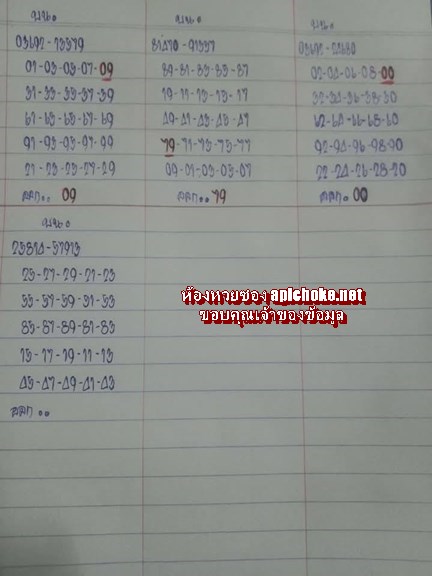 03692-13579
01-03-05-07-09
31-33-35-37-39
61-63-65-67-69
91-93-95-97-99
21-23-25-27-29
ออก.. 09
81470-91357
89-81-83-85-87
19-11-13-15-17
49-41-43-45-47
79-71-73-75-77
09-01-03-05-07
ออก.. 79
03692-24680
02-04-06-08-00
32-34-36-38-30
62-64-66-68-60
92-94-96-98-90
22-24-26-28-20
ออก.. 00
25814-57913
25-27-29-21-23
55-57-59-51-53
85-87-89-81-83
15-17-19-11-13
45-47-49-41-43
ออก..
ห้องหวยซอง apichoke.net
ขอบคุณเจ้าของข้อมูล